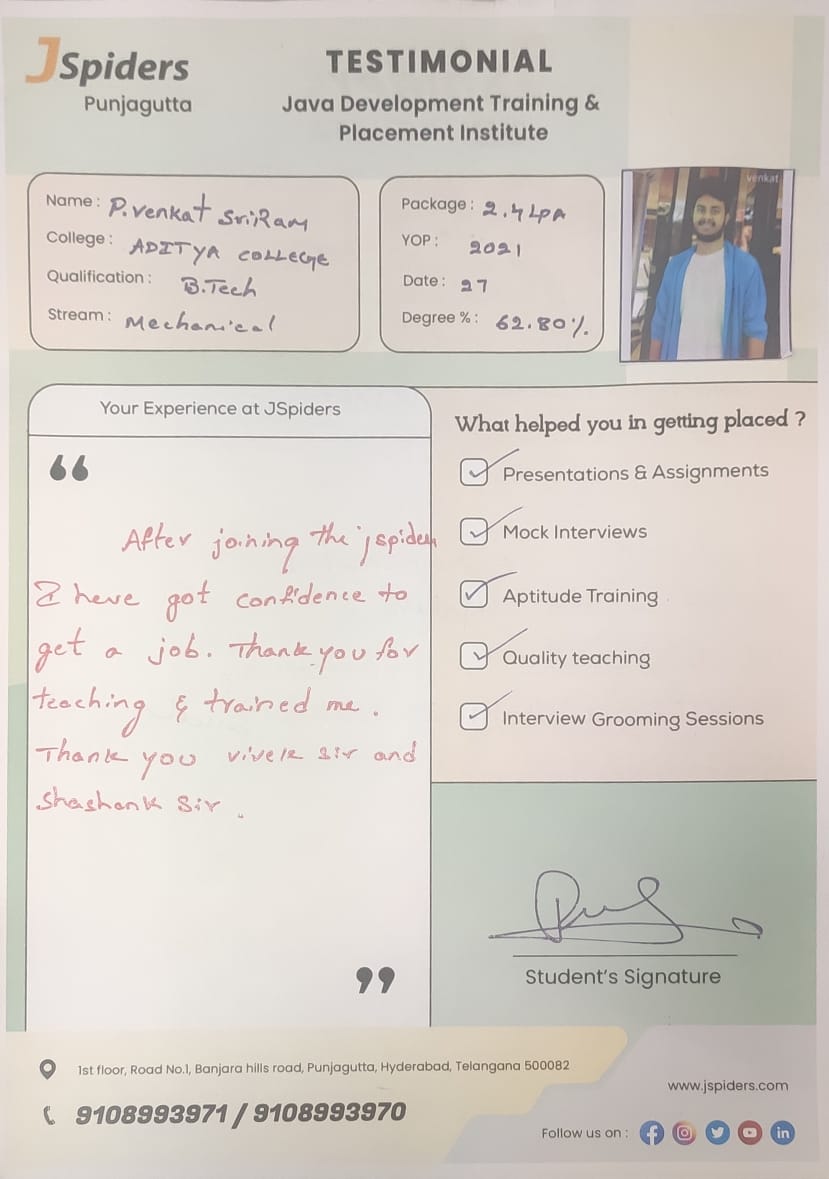 JSpiders
Punjagutta
TESTIMONIAL
Java Development Training &
Placement Institute
Name : P.venkat SriRam
College : ADITYA COLLEGE
Qualification : B.Tech
Stream : Mechanical
Package : 2.4 LPA
YOP : 2021
Date : 27
Degree % : 62.80%
venkat
Your Experience at JSpiders
“
After joining the jspiders
I heve got confidence to
get a job. Thank you for
teaching & trained me.
Thank you vivek sir and
Shashank Sir.
”
What helped you in getting placed ?
Presentations & Assignments
Mock Interviews
Aptitude Training
Quality teaching
Interview Grooming Sessions
Student's Signature
1st floor, Road No.1, Banjara hills road, Punjagutta, Hyderabad, Telangana 500082
9108993971 / 9108993970
www.jspiders.com
Follow us on :